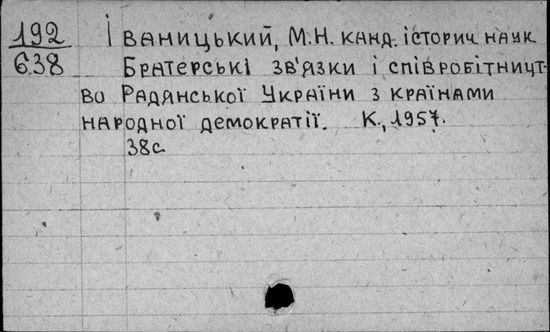 192
638
Іваницький, М.Н. канд. історич. наук
Братерські зв'язки і співробітницт-
во Радянської України з країнами
народної демократії. К., 1957.
38с.